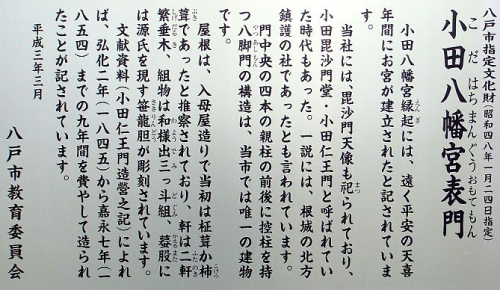 八戸市指定文化財(昭和四八年一月二四日指定)
小田八幡宮表門
こだはちまんぐうおもてもん
小田八幡宮縁起には、遠く平安の天喜
えんぎ
年間にお宮が建立されたと記されていま
す。
当社には、毘沙門天像も祀られており、
まつ
小田毘沙門堂・小田仁王門と呼ばれてい
た時代もあった。一説には、根城の北方
鎮護の社であったとも言われています。
門中央の四本の親柱の前後に控柱を持
つ八脚門の構造は、当市では唯一の建物
やつあしもん
です。
屋根は、入母屋造りで当初は柾葺か柿
こけら
葺であったと推察されており、軒は二軒
ぶき
ふたのき
繁垂木、組物は和様出三つ斗組、蟇股に
しげだるき
わようでみつどぐみ
かえるまた
は源氏を現す笹龍胆が彫刻されています。
ささりんどう
文献資料(小田仁王門造營之記)によれ
ば、弘化二年(一八四五)から嘉永七年(一
八五四)までの九年間を費やして造られ
たことが記されています。
平成三年三月
八戸市教育委員会